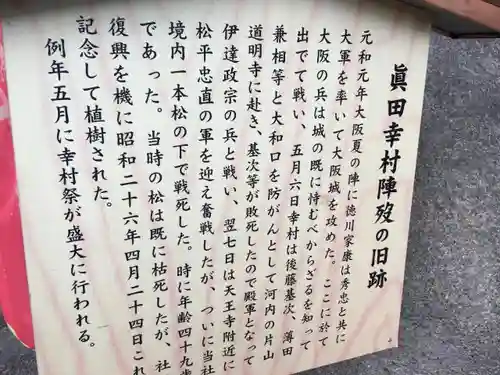 眞田幸村陣歿の旧跡
元和元年大阪夏の陣に徳川家康は秀忠と共に
大軍を率いて大阪城を攻めた。ここに於て
大阪の兵は城の既に恃むべからざるを知って
出でて戦い、五月六日幸村は後藤基次、薄田
兼相等と大和口を防がんとして河内の片山
道明寺に赴き、基次等が敗死したので殿軍となって
伊達政宗の兵と戦い、翌七日は天王寺附近に
松平忠直の軍を迎え奮戦したが、ついに当社
境内一本松の下で戦死した。時に年齢四十九歳
であった。当時の松は既に枯死したが、社
復興を機に昭和二十六年四月二十四日これ
記念して植樹された。
例年五月に幸村祭が盛大に行われる。